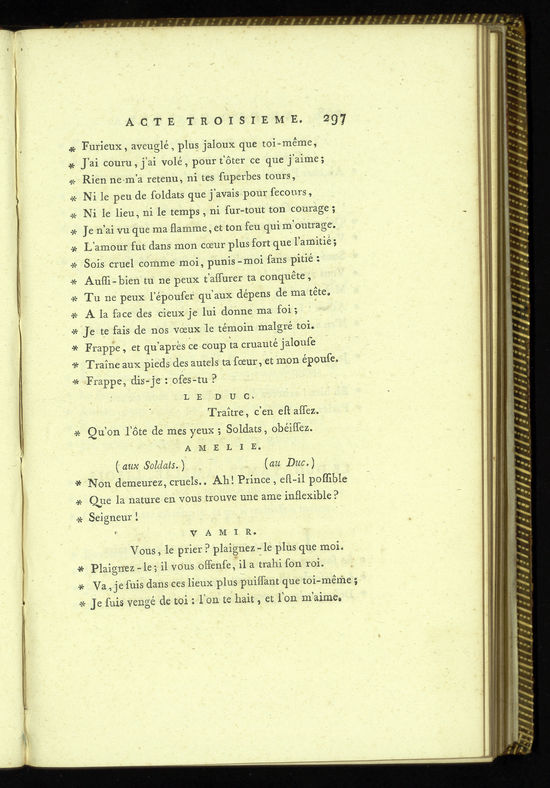 ACTE TROISIEME. 297
* Furieux, aveuglé, plus jaloux que toi-même,
* J'ai couru, j'ai volé, pour t'ôter ce que j'aime;
* Rien ne m'a retenu, ni tes ſuperbes tours,
* Ni le peu de ſoldats que j'avais pour ſecours,
* Ni le lieu, ni le temps, ni ſur-tout ton courage;
* Je n'ai vu que ma flamme, et ton feu qui m'outrage.
* L'amour fut dans mon cœur plus fort que l'amitié;
* Sois cruel comme moi, punis-moi ſans pitié:
* Auſſi-bien tu ne peux t'aſſurer ta conquête,
* Tu ne peux l'épouſer qu'aux dépens de ma tête.
* A la face des cieux je lui donne ma foi;
* Je te fais de nos vœux le témoin malgré toi.
* Frappe, et qu'après ce coup ta cruauté jalouſe
* Traîne aux pieds des autels ta ſœur, et mon épouſe.
* Frappe, dis-je: oſes-tu?
LE DUC.
Traître, c'en eſt aſſez.
* Qu'on l'ôte de mes yeux; Soldats, obéiſſez.
AMELIE.
(aux Soldats.) (au Duc.)
* Non demeurez, cruels.. Ah! Prince, eſt-il poſſible
* Que la nature en vous trouve une ame inflexible?
* Seigneur!
VAMIR.
Vous, le prier? plaignez-le plus que moi.
* Plaignez-le; il vous offenſe, il a trahi ſon roi.
* Va, je ſuis dans ces lieux plus puiſſant que toi-même;
* Je ſuis vengé de toi: l'on te hait, et l'on m'aime.